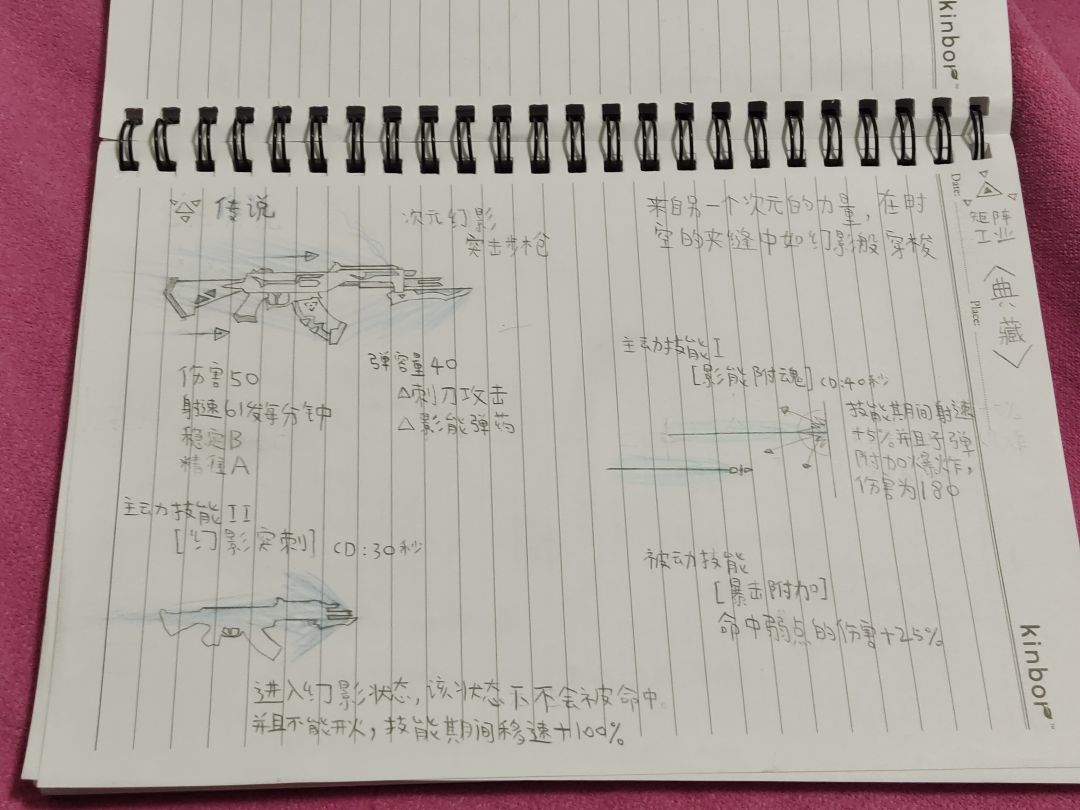 kinbor
Date:
Place:
矩阵
工业
〈典藏〉
传说
次元幻影
突击步枪
伤害50
射速61发每分钟
稳定B
精准A
弹容量40
△刺刀攻击
△影能弹药
主动技能II
[幻影突刺] CD:30秒
进入幻影状态,该状态下不会被命中。
并且不能开火,技能期间移速+100%
来自另一个次元的力量,在时
空的夹缝中如幻影般穿梭
主动技能I
[影能附魂] CD:40秒
技能期间射速
+5%并且子弹
附加爆炸,
伤害为180
被动技能
[暴击附加]
命中弱点的伤害+25%
kinbor